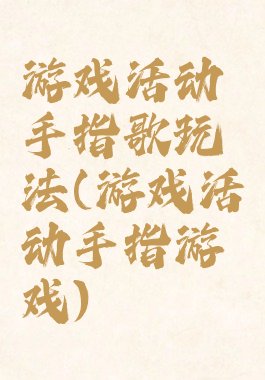 游戏活动
手指歌玩
法(游戏活
动手指游
戏)